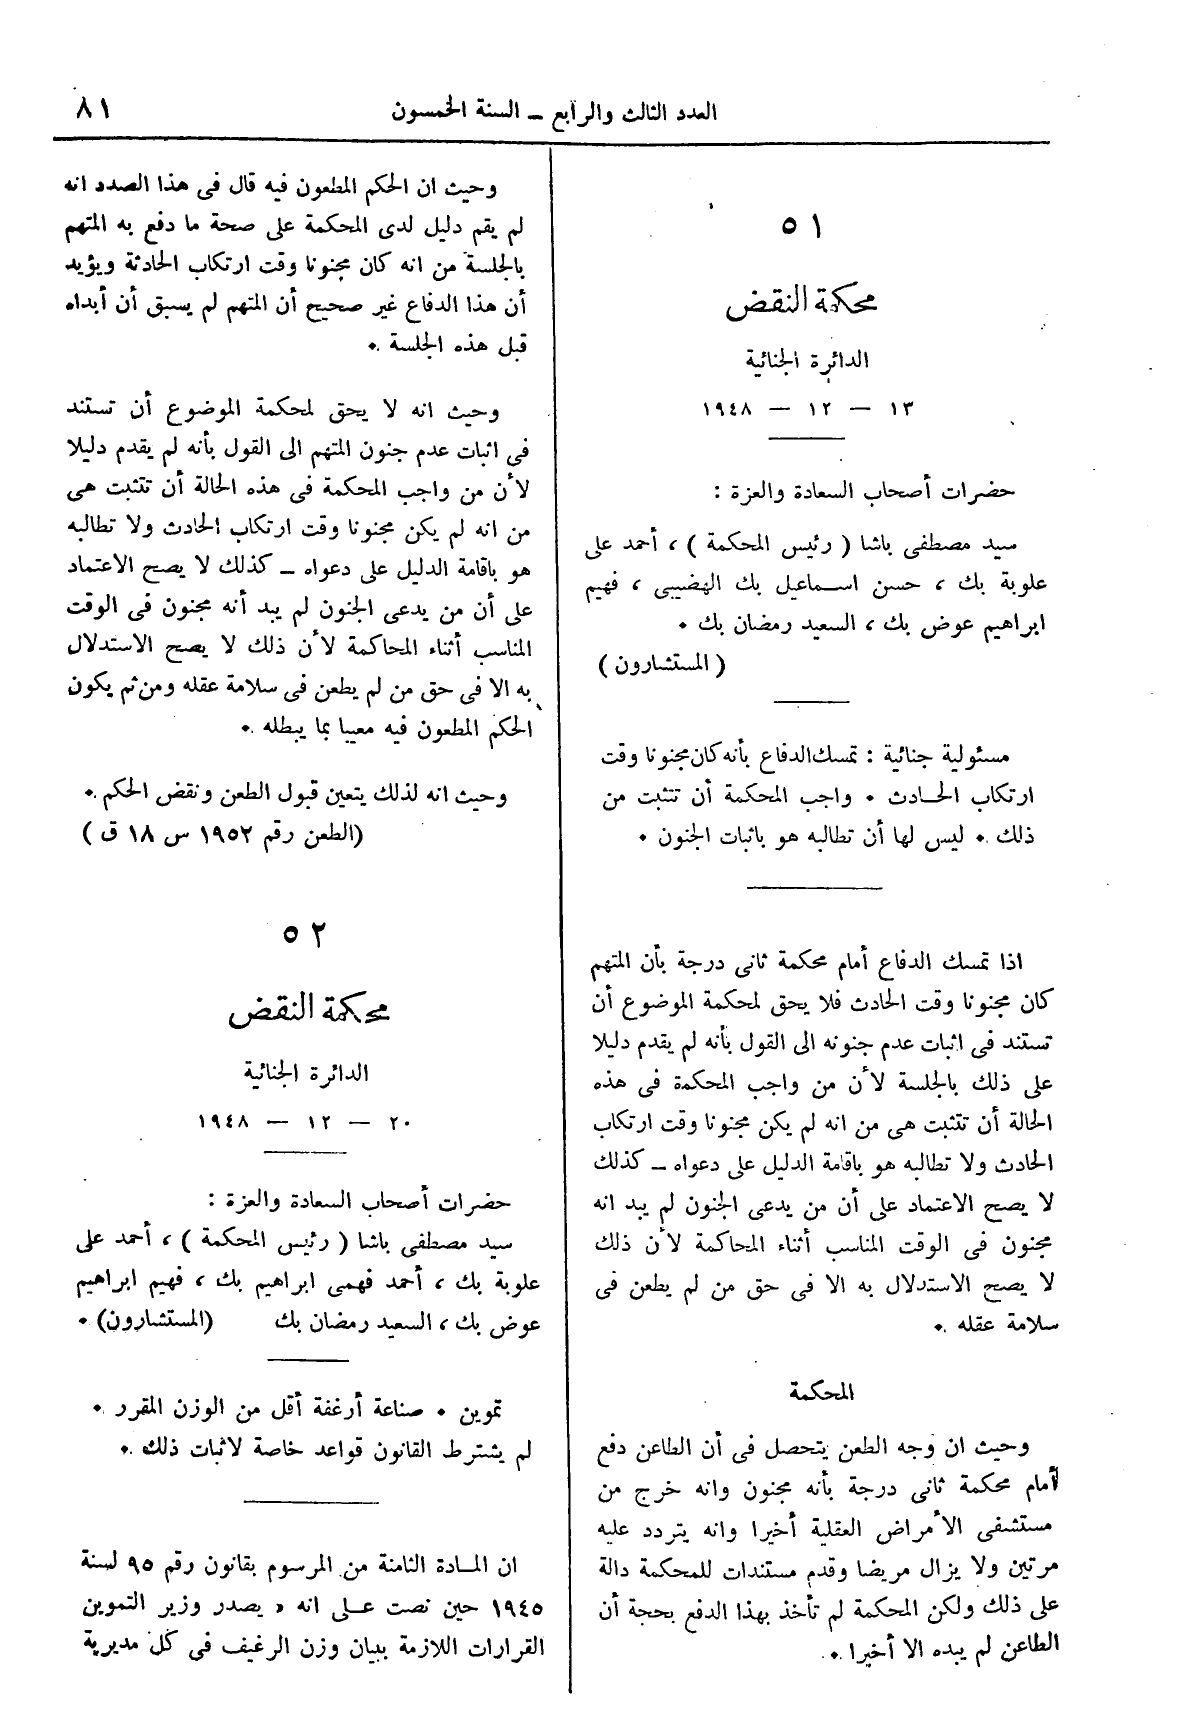 العدد الثالث والرابع ــ السنة الخمسون
٨١
٥١
محكمة النقض
الدائرة الجنائية
١٣ — ١٢ — ١٩٤٨
حضرات أصحاب السعادة والعزة :
سيد مصطفى باشا ( رئيس المحكمة ) ، أحمد على
علوبة بك ، حسن اسماعيل بك الهضيبى ، فهيم
ابراهيم عوض بك ، السعيد رمضان بك .
( المستشارون )
مسئولية جنائية : تمسك الدفاع بأنه كان مجنونا وقت
ارتكاب الحادث . واجب المحكمة أن تتثبت من
ذلك . ليس لها أن تطالبه هو باثبات الجنون .
اذا تمسك الدفاع أمام محكمة ثانى درجة بأن المتهم
كان مجنونا وقت الحادث فلا يحق لمحكمة الموضوع أن
تستند فى اثبات عدم جنونه الى القول بأنه لم يقدم دليلا
على ذلك بالجلسة لأن من واجب المحكمة فى هذه
الحالة أن تتثبت هى من انه لم يكن مجنونا وقت ارتكاب
الحادث ولا تطالبه هو باقامة الدليل على دعواه ــ كذلك
لا يصح الاعتماد على أن من يدعى الجنون لم يبد انه
مجنون فى الوقت المناسب أثناء المحاكمة لأن ذلك
لا يصح الاستدلال به الا فى حق من لم يطعن فى
سلامة عقله .
المحكمة
وحيث ان وجه الطعن يتحصل فى أن الطاعن دفع
أمام محكمة ثانى درجة بأنه مجنون وانه خرج من
مستشفى الأمراض العقلية أخيرا وانه يتردد عليه
مرتين ولا يزال مريضا وقدم مستندات للمحكمة دالة
على ذلك ولكن المحكمة لم تأخذ بهذا الدفع بحجة أن
الطاعن لم يبده الا أخيرا .
وحيث ان الحكم المطعون فيه قال فى هذا الصدد انه
لم يقم دليل لدى المحكمة على صحة ما دفع به المتهم
بالجلسة من انه كان مجنونا وقت ارتكاب الحادثة ويؤيد
أن هذا الدفاع غير صحيح أن المتهم لم يسبق أن أبداه
قبل هذه الجلسة .
وحيث انه لا يحق لمحكمة الموضوع أن تستند
فى اثبات عدم جنون المتهم الى القول بأنه لم يقدم دليلا
لأن من واجب المحكمة فى هذه الحالة أن تتثبت هى
من انه لم يكن مجنونا وقت ارتكاب الحادث ولا تطالبه
هو باقامة الدليل على دعواه ــ كذلك لا يصح الاعتماد
على أن من يدعى الجنون لم يبد أنه مجنون فى الوقت
المناسب أثناء المحاكمة لأن ذلك لا يصح الاستدلال
به الا فى حق من لم يطعن فى سلامة عقله ومن ثم يكون
الحكم المطعون فيه معيبا بما يبطله .
وحيث انه لذلك يتعين قبول الطعن ونقض الحكم .
(الطعن رقم ١٩٥٢ س ١٨ ق )
٥٢
محكمة النقض
الدائرة الجنائية
٢٠ — ١٢ — ١٩٤٨
حضرات أصحاب السعادة والعزة :
سيد مصطفى باشا ( رئيس المحكمة ) ، أحمد على
علوبة بك ، أحمد فهمى ابراهيم بك ، فهيم ابراهيم
عوض بك ، السعيد رمضان بك (المستشارون) .
تموين . صناعة أرغفة أقل من الوزن المقرر .
لم يشترط القانون قواعد خاصة لاثبات ذلك .
ان المادة الثامنة من المرسوم بقانون رقم ٩٥ لسنة
١٩٤٥ حين نصت على انه « يصدر وزير التموين
القرارات اللازمة ببيان وزن الرغيف فى كل مديرية